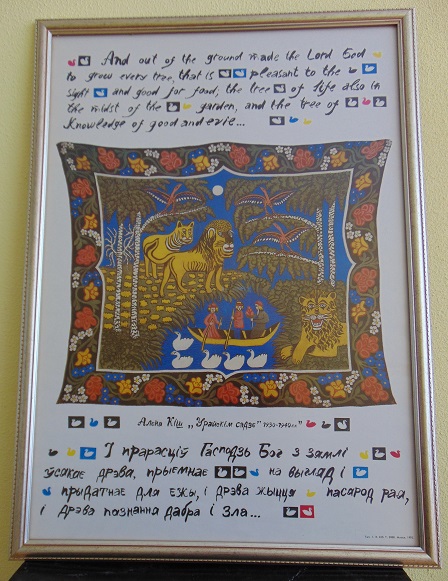 And out of the ground made the Lord God
to grow every tree, that is pleasant to the
sight and good for food, the tree of life also in
the midst of the garden, and the tree of
knowledge of good and evie...
Алена Кіш „У райскім садзе" 1930-1940гг"
І прарасціў Гасподзь Бог з зямлі
ўсякае дрэва, прыемнае на выгляд і
прыдатнае для ежы, і дрэва жыцця пасярод рая,
і дрэва познання дабра і зла...